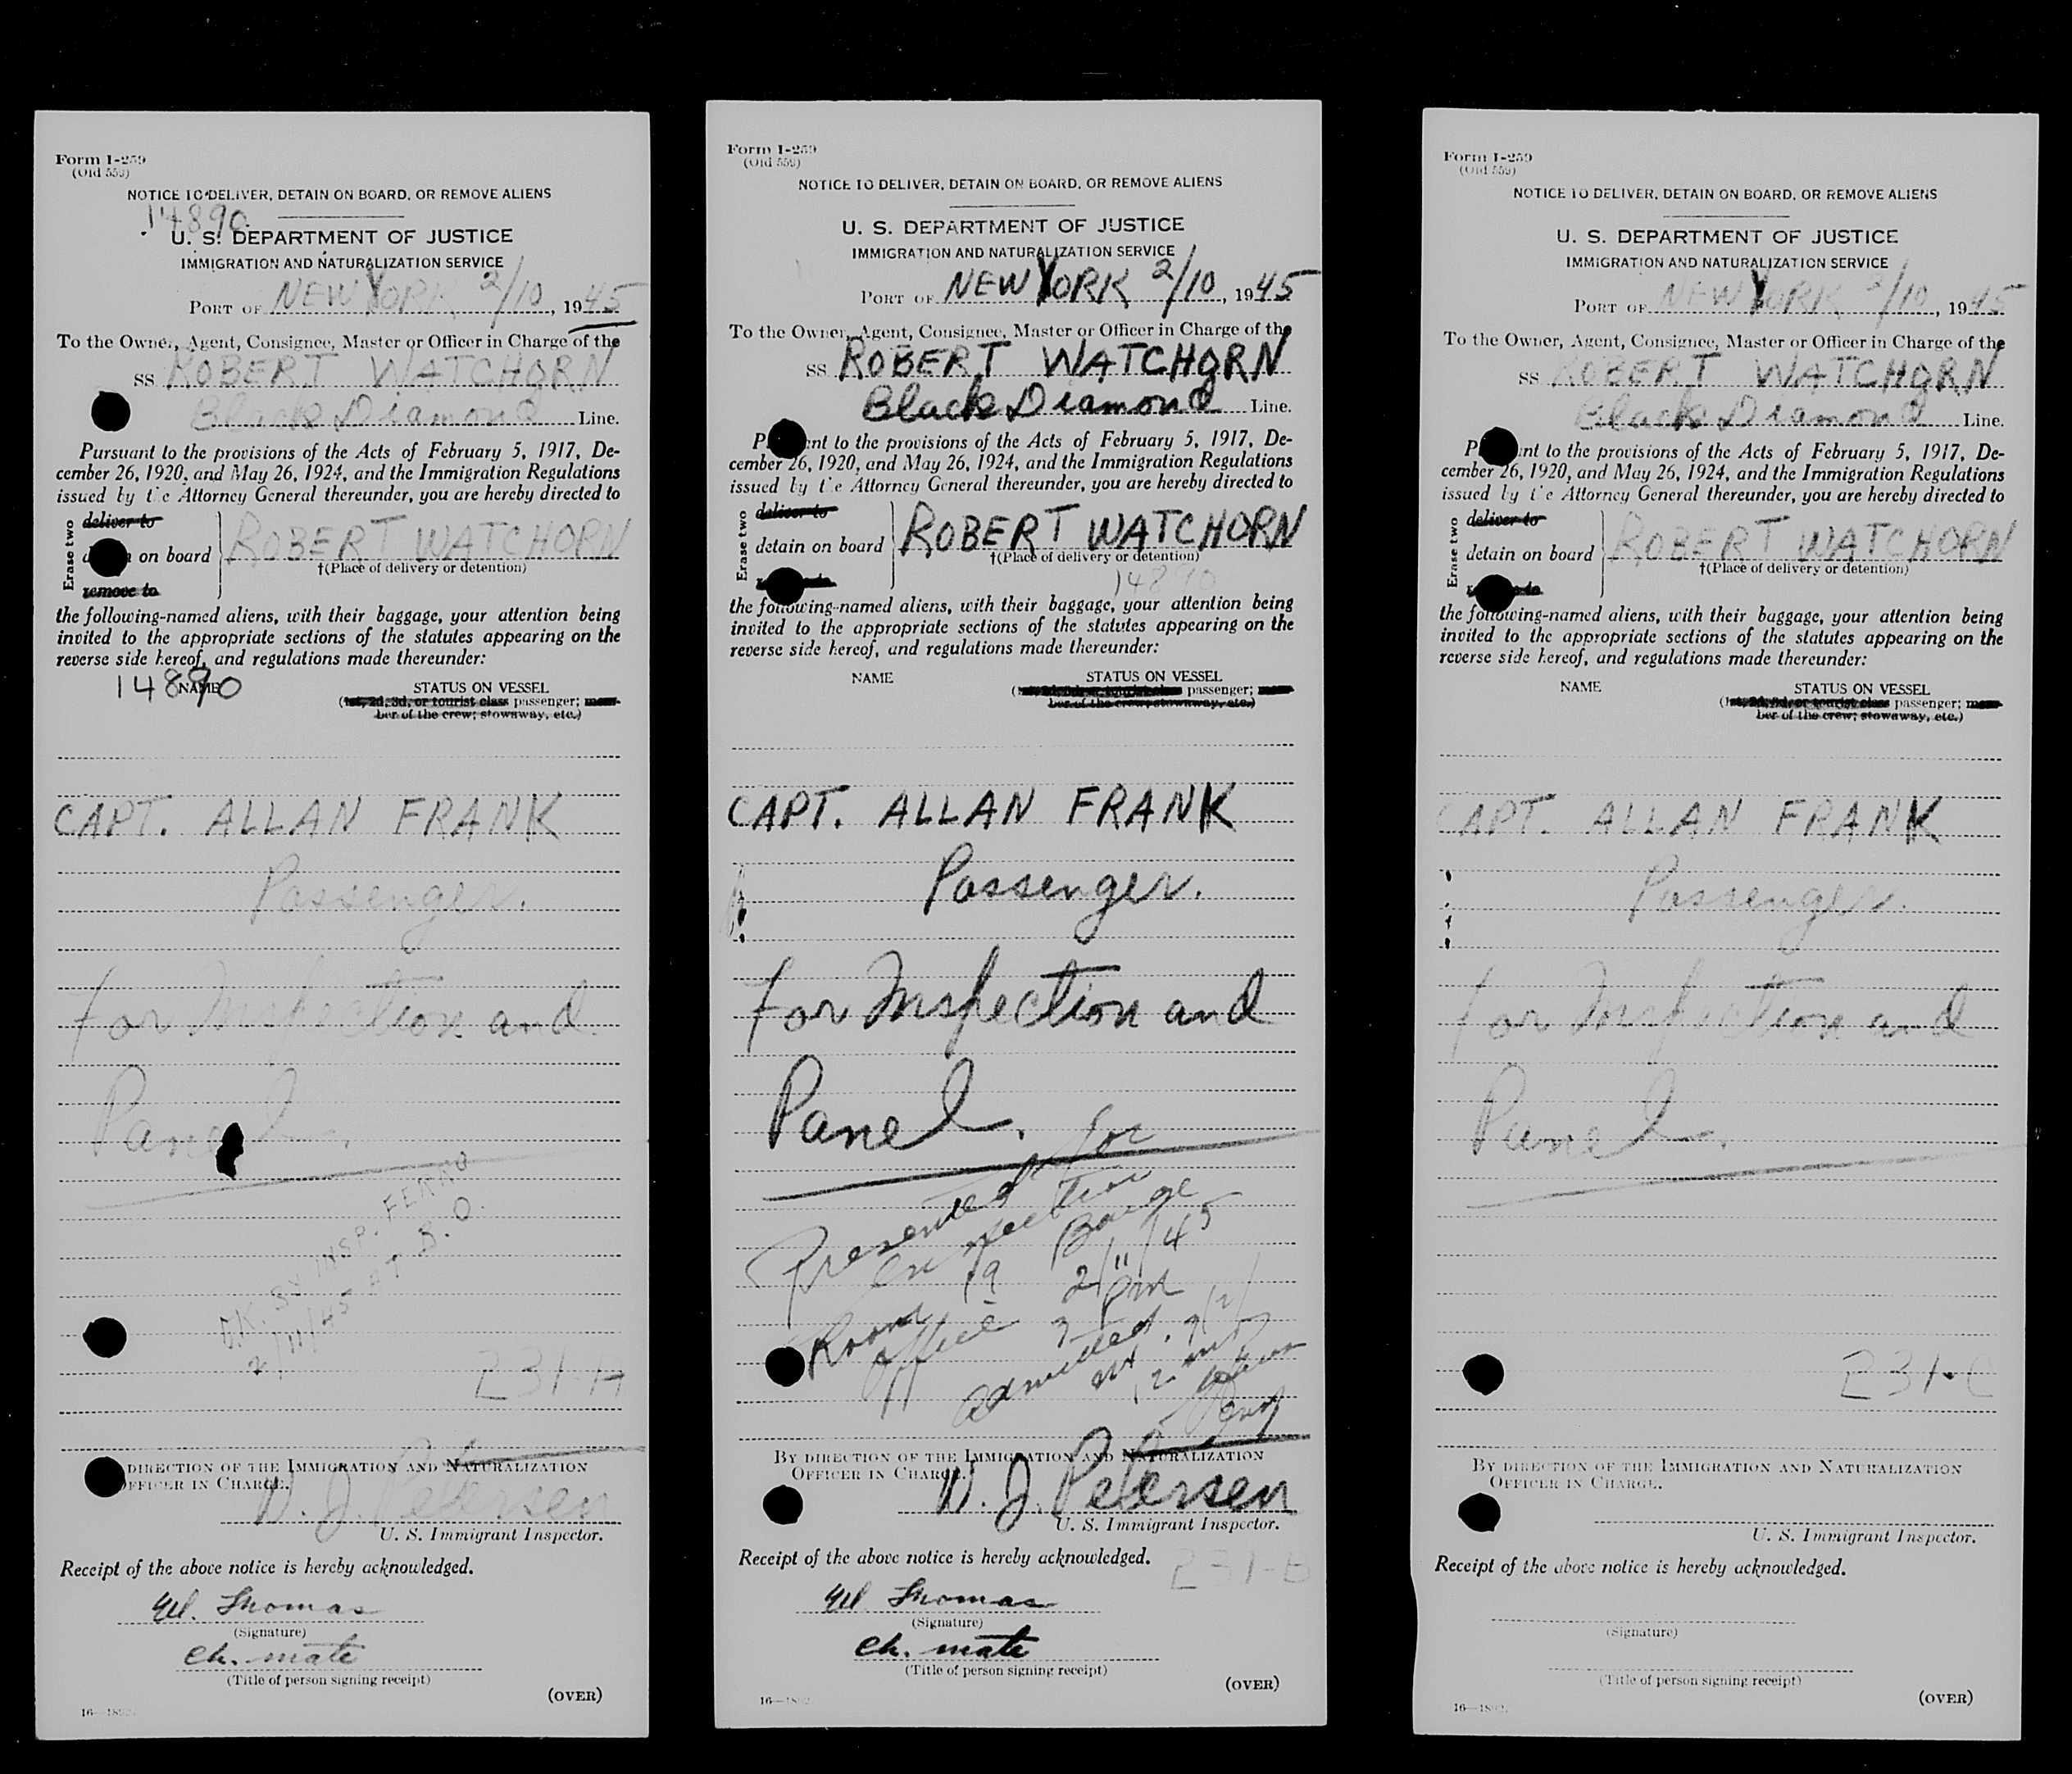 Form I-259
(Old 559)
NOTICE TO DELIVER, DETAIN ON BOARD, OR REMOVE ALIENS
14890
U. S. DEPARTMENT OF JUSTICE
IMMIGRATION AND NATURALIZATION SERVICE
PORT OF NEW YORK 2/10, 1945
To the Owner, Agent, Consignee, Master or Officer in Charge of the
SS ROBERT WATCHORN
Black Diamond Line.
Pursuant to the provisions of the Acts of February 5, 1917, De-
cember 26, 1920, and May 26, 1924, and the Immigration Regulations
issued by the Attorney General thereunder, you are hereby directed to
Erase two
deliver to
on board
remove to
ROBERT WATCHORN
†(Place of delivery or detention)
the following-named aliens, with their baggage, your attention being
invited to the appropriate sections of the statutes appearing on the
reverse side hereof, and regulations made thereunder:
14890
NAME
STATUS ON VESSEL
(1st, 2d, 3d, or tourist class passenger; mem-
ber of the crew; stowaway, etc.)
CAPT. ALLAN FRANK
Passenger.
for Inspection and
Panel.
O.K. BY INSP.
2/11/45 AT B.O.
231-A
DIRECTION OF THE IMMIGRATION AND NATURALIZATION
OFFICER IN CHARGE.
W. J. Petersen
U. S. Immigrant Inspector.
Receipt of the above notice is hereby acknowledged.
Thomas
(Signature)
Ch. mate
(Title of person signing receipt)
(OVER)
Form I-259
(Old 559)
NOTICE TO DELIVER, DETAIN ON BOARD, OR REMOVE ALIENS
U. S. DEPARTMENT OF JUSTICE
IMMIGRATION AND NATURALIZATION SERVICE
PORT OF NEW YORK 2/10, 1945
To the Owner, Agent, Consignee, Master or Officer in Charge of the
SS ROBERT WATCHORN
Black Diamond Line.
P nt to the provisions of the Acts of February 5, 1917, De-
cember 26, 1920, and May 26, 1924, and the Immigration Regulations
issued by the Attorney General thereunder, you are hereby directed to
Erase two
deliver to
detain on board
ROBERT WATCHORN
†(Place of delivery or detention)
14890
the following-named aliens, with their baggage, your attention being
invited to the appropriate sections of the statutes appearing on the
reverse side hereof, and regulations made thereunder:
NAME
STATUS ON VESSEL
passenger; mem-
ber of the crew; stowaway, etc.)
CAPT. ALLAN FRANK
Passenger.
for Inspection and
Panel.
Presented for
inspection
Room 19 Barge
Office 2/11/45
pm
admitted
BY DIRECTION OF THE IMMIGRATION AND NATURALIZATION
OFFICER IN CHARGE.
W. J. Petersen
U. S. Immigrant Inspector.
Receipt of the above notice is hereby acknowledged.
231-B
Thomas
(Signature)
Ch. mate
(Title of person signing receipt)
(OVER)
Form I-259
(Old 559)
NOTICE TO DELIVER, DETAIN ON BOARD, OR REMOVE ALIENS
U. S. DEPARTMENT OF JUSTICE
IMMIGRATION AND NATURALIZATION SERVICE
PORT OF NEW YORK 2/10, 1945
To the Owner, Agent, Consignee, Master or Officer in Charge of the
SS ROBERT WATCHORN
Black Diamond Line.
P nt to the provisions of the Acts of February 5, 1917, De-
cember 26, 1920, and May 26, 1924, and the Immigration Regulations
issued by the Attorney General thereunder, you are hereby directed to
Erase two
deliver to
detain on board
ROBERT WATCHORN
†(Place of delivery or detention)
the following-named aliens, with their baggage, your attention being
invited to the appropriate sections of the statutes appearing on the
reverse side hereof, and regulations made thereunder:
NAME
STATUS ON VESSEL
(1st, 2d, 3d, or tourist class passenger; mem-
ber of the crew; stowaway, etc.)
CAPT. ALLAN FRANK
Passenger.
for Inspection and
Panel.
231-C
BY DIRECTION OF THE IMMIGRATION AND NATURALIZATION
OFFICER IN CHARGE.
U. S. Immigrant Inspector.
Receipt of the above notice is hereby acknowledged.
(Signature)
(Title of person signing receipt)
(OVER)